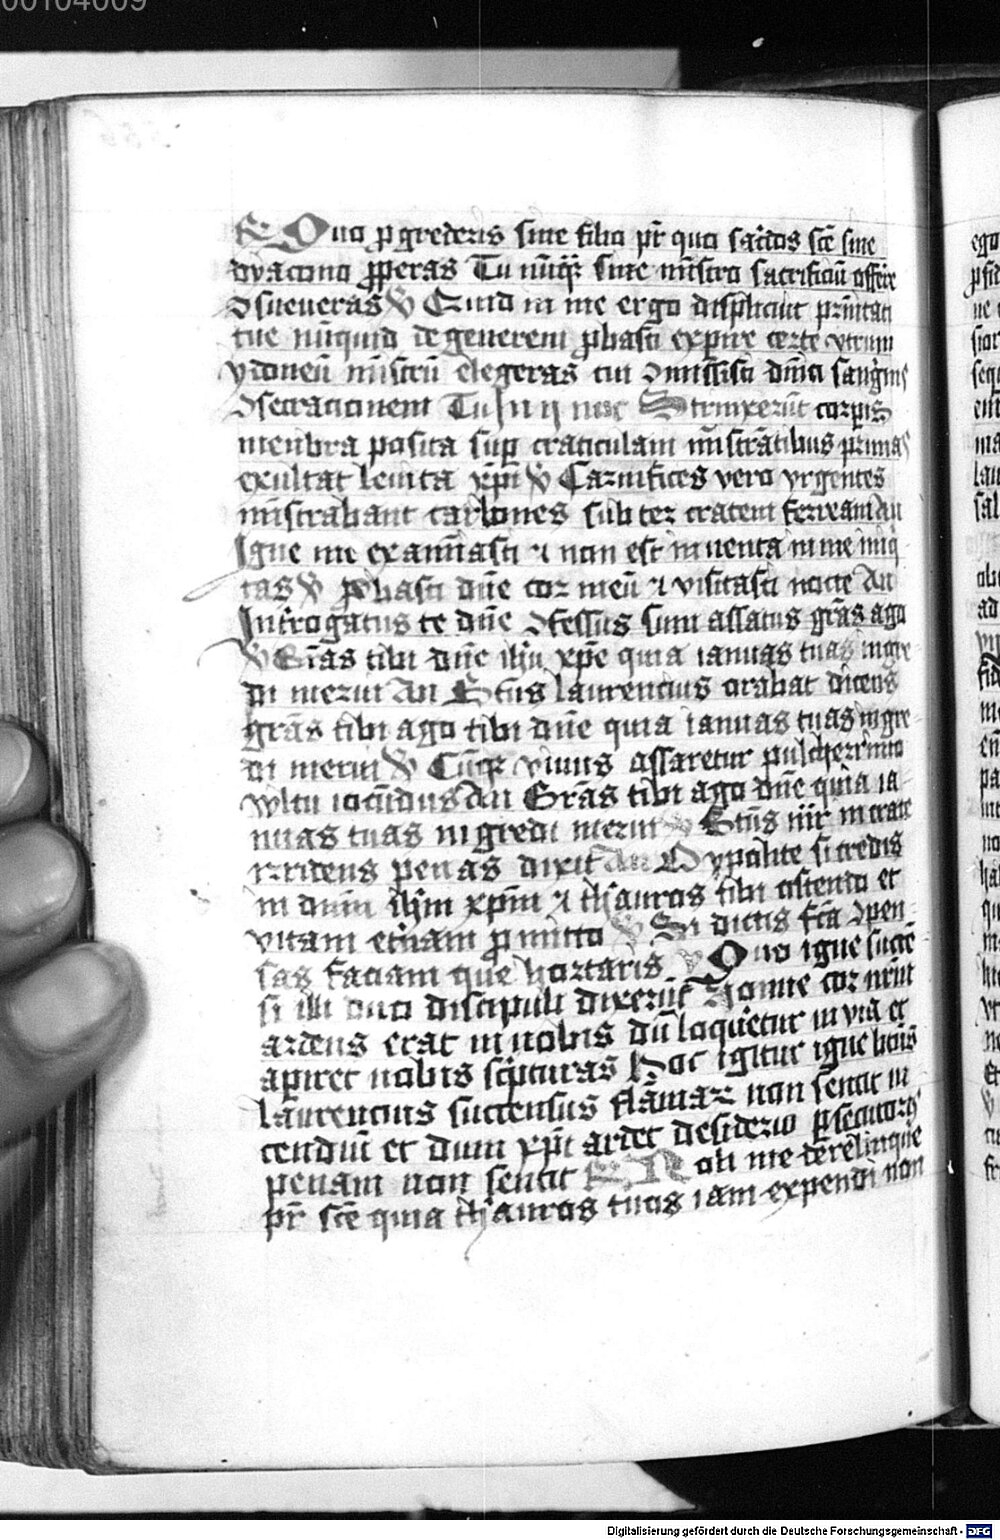 00104009
R Quo progrederis sine filio pr̄ quo sac̄dos sc̄e sine
dyacono ꝓperas Tu nūqꝫ sine mīstro sacrificiū offēr
ꝯsueueras V Quid in me ergo displicuit pat̄nitati
tue nūquid degenerem ꝓbasti expire certe vtrum
ydoneū mīstrū elegeras cui ꝯmisisti dnīci sangīnis
ꝯsecracionem Tu In ij noc̄ Strinxerūt corꝑis
menbra posita suꝑ craticulam mīstrātibus prunas
exultat leuita xp̄i V Carnifices vero vrgentes
mīstrabant carbones subter cratem ferream An
Igne me examīasti ⁊ non est inuenta in me iniq̄
tas V Probasti dn̄e cor meū ⁊ visitasti nocte An
Intr̄ogatus te dn̄e ꝯfessus sum assatus grā̄s ago
V Grā̄s tibi dn̄e ihū xp̄e quia ianuas tuas ingre
di merui An Btū̄s laurencius orabat dicens
grā̄s tibi ago tibi dn̄e quia ianuas tuas ingre
di merui V Cūqꝫ viuus assaretur pulcherrimo
wltu iocūdus An Grā̄s tibi ago dn̄e quia ia
nuas tuas ingredi merui V Btū̄s uir in crate
irridens penas dixit An O ypolite si credis
in dnm̄ ihm̄ xpm̄ ⁊ thauros tibi ostendo et
vitam et̄nam ꝓmitto V Si dictis fc̄a ꝯpen
sas faciam que hortaris V Quo igne succē
si illi duo discipuli dixerūt Nonne cor nr̄m
ardens erat in nobis dū loqueretur in via et
apiret nobis sc̄pturas Hoc igitur igne btūs
laurencius succensus flā̄maꝝ non sentit in
cendiū et dum xp̄i ardet desiderio ꝑsecutoris
penam non sentit R Noli me derelinqūe
pr̄ sc̄e quia thauros tuos iam expendi non
Digitalisierung gefördert durch die Deutsche Forschungsgemeinschaft - DFG